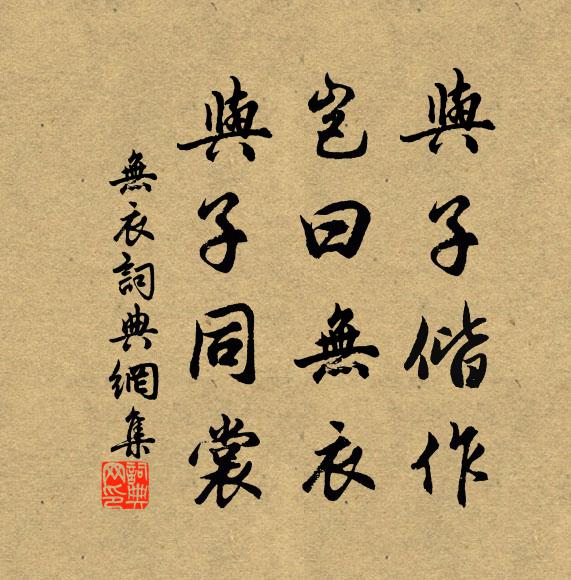 與子偕作
豈曰無衣
與子同裳
無衣詞典網集
詞典
网印